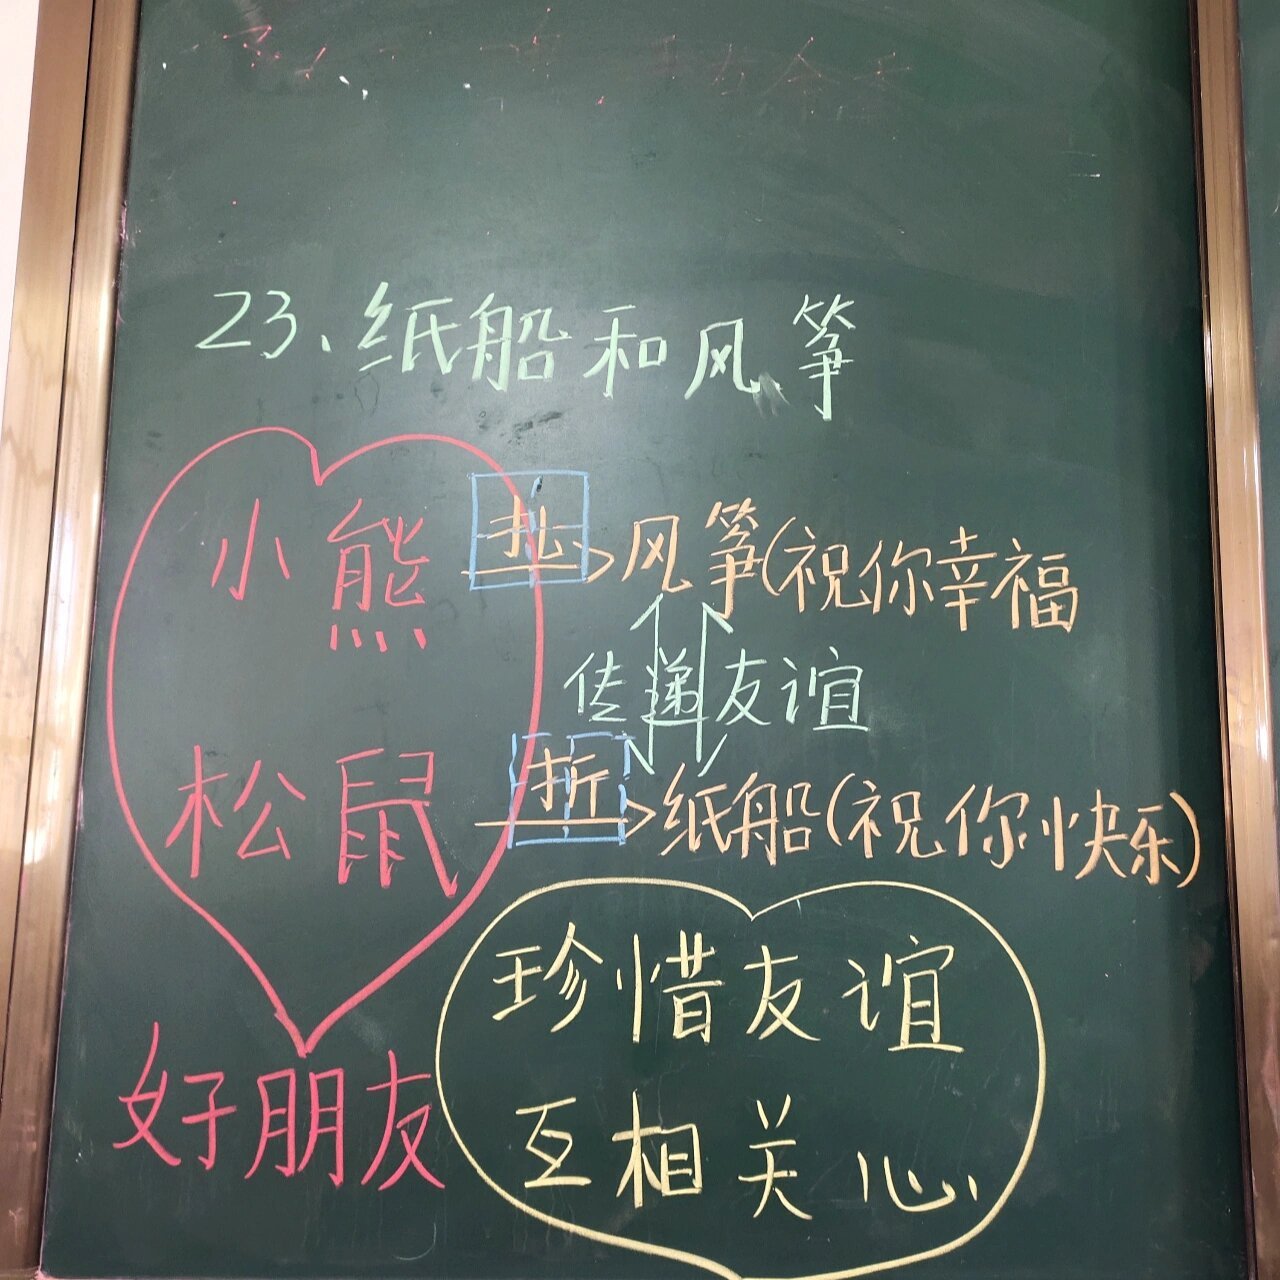 23、纸船和风筝
小熊 扎 风筝(祝你幸福
传递友谊
松鼠 折 纸船(祝你快乐)
珍惜友谊
互相关心
好朋友